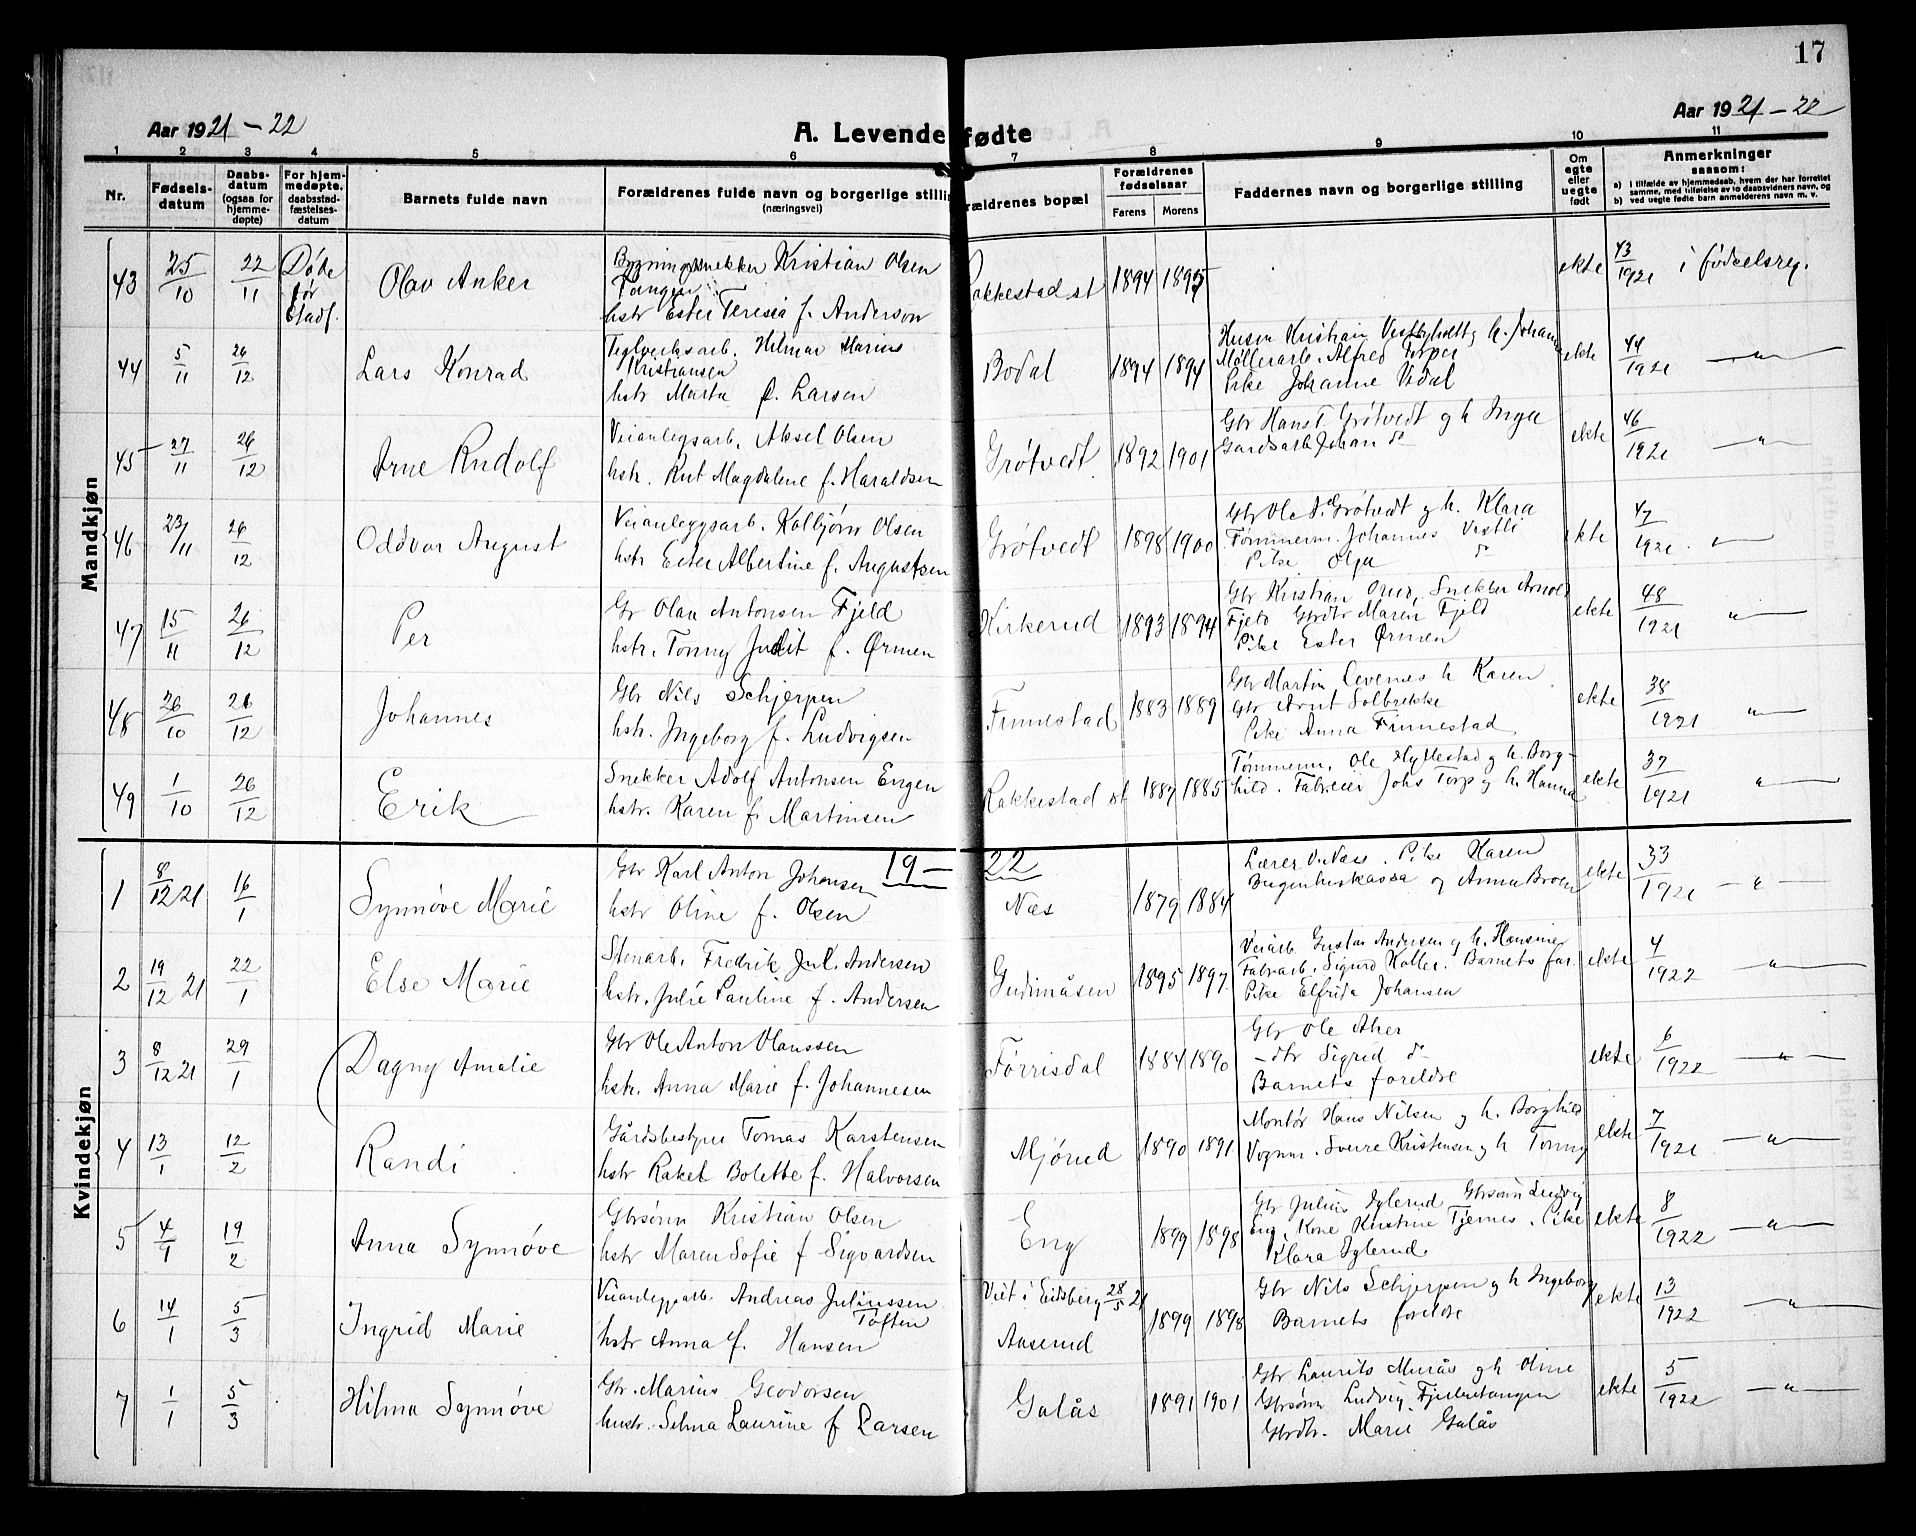 17
Aar 1921 – 22
A. Levende fødte
Aar 1921 – 22
1 2 3 4 5 6 7 8 9 10 11
Nr.
Fødsels-
datum
Daabs-
datum
(ogsaa for
hjemme-
døpte)
For hjem-
medøpte.
daabsstad-
fæstelses-
datum
Barnets fulde navn
Forældrenes fulde navn og borgerlige stilling
(næringsvei)
Forældrenes bopæl
Forældrenes
fødselsaar
Farens Morens
Faddernes navn og borgerlige stilling
Om
egte
eller
uegte
født
Anmerkninger
saasom:
a) i tilfælde av hjemmedaab, hvem der har forrettet
samme, med tilføielse av to daabsvidners navn, og
b) ved uegte fødte barn anmelderens navn m. v.
Mandkjøn
43 25/10 22/11 Døde før stadf. Olav Anker
Bygningssnekker Kristian Olsen
Tangen
hstr Ester Teresia f. Anderson
Rakkestad st 1894 1895 ekte 43/1921 i fødselsreg.
44 5/11 26/12 Lars Konrad
Teglverksarb. Hilmar Marius
Kristiansen
hstr Marta f. Larsen
Bodal 1894 1894
Husm Kristian Vestbyhedt g h. Johanne
Møllerarb. Alfred Torper
Pike Johanne Vidal
ekte 44/1921 — " —
45 27/11 26/12 Arne Rudolf
Veianlegsarb. Aksel Olsen
hstr. Rut Magdalene f. Haraldsen
Grøtvedt 1892 1901
Gbr Hans T Grøtvedt og h Inga
Gardsarb Johan do
ekte 46/1921 — " —
46 23/11 26/12 Oddvar August
Veianleggsarb. Kolbjørn Olsen
hstr Ester Albertine f. Augustsen
Grøtvedt 1898 1900
Gbr Ole A. Grøtvedt og h. Klara
Tømmerm. Johannes Vestli
Pike Olga do
ekte 47/1921. — " —
47 15/11 26/12 Per
Gbr Olav Antonsen Fjeld
hstr. Tonny Judit f. Ørmen
Kirkerud 1893 1894
Gbr Kristian Orud, Snekker Arnold
Fjeld Gbrdtr Maren Fjeld
Pike Ester Ørmen
ekte 48/1921 — " —
48 26/10 26/12 Johannes
Gbr Nils Schjerpen
hstr. Ingeborg f. Ludvigsen
Finnestad 1883 1889
Gbr Martin Levernes h Karen
Gbr Arnt Solbrekke
Pike Anna Finnestad
ekte 38/1921 — " —
49 1/10 26/12 Erik
Snekker Adolf Antonsen Engen
hstr. Karen f. Martinsen
Rakkestad st 1887 1885
Tømmerm. Ole Hyllestad g h. Borg-
hild. Fabreier Johs Torp g h. Hanna
ekte 37/1921 — " —
19 — 22
Kvindekjøn
1 8/12 21 16/1 Synnøve Marie
Gbr Karl Anton Johansen
hstr Oline f. Olsen
Næs 1879 1884
Lærer Næss. Pike Karen
og Anna Broen
ekte 33/1921 — " —
2 19/12 21 22/1 Else Marie
Stenarb. Fredrik Jul. Andersen
hstr. Julie Pauline f. Andersen
Gudimåsen 1895 1897
Veiarb Gustav Andersen g h. Hansine
Fabrarb. Sigurd Koller. Barnets far.
Pike Elfrida Johansen
ekte 4/1922 — " —
3 8/12 21 29/1 Dagny Amalie
Gbr Ole Anton Olaussen
hstr. Anna Marie f. Johannesen
Førrisdal 1884 1890
Gbr Ole Aker
– dtr Sigrid do
Barnets foreldre
ekte 6/1922 — " —
4 13/1 12/2 Randi
Gårdsbestyrer Tomas Karstensen
hstr Rakel Bolette f. Halvorsen
Mjørud 1890 1891
Montør Hans Nilsen g h. Borghild
Vognm. Sverre Kristensen g h Tonny
ekte 7/1921 — " —
5 4/1 19/2 Anna Synnøve
Gbrsønn Kristian Olsen
hstr Maren Sofie f Sigvardsen
Eng 1899 1898
Gbr Julius Iglerud Gbrsønn Ludvig
Eng, Kone Kristine Tjernes. Pike
Klara Iglerud
ekte 8/1922 — " —
6 14/1 5/3 Ingrid Marie
Veianleggsarb. Andreas Juliussen
Toften
hstr Anna f. Hansen
Viet i Eidsberg 28/5 21
Aaserud 1899 1898
Gbr Nils Schjerpen g h Ingeborg
Barnets foreldre
ekte 13/1922 — " —
7 1/1 5/3 Hilma Synnøve
Gbr. Marius Geodorsen
hustr. Selma Laurine f Larsen
Galås 1891 1901
Gbr Laurits Murås g h Oline
Gbrsønn Ludvig Fjelletangen
Gbrdtr. Marie Galås
ekte 5/1922 — " —